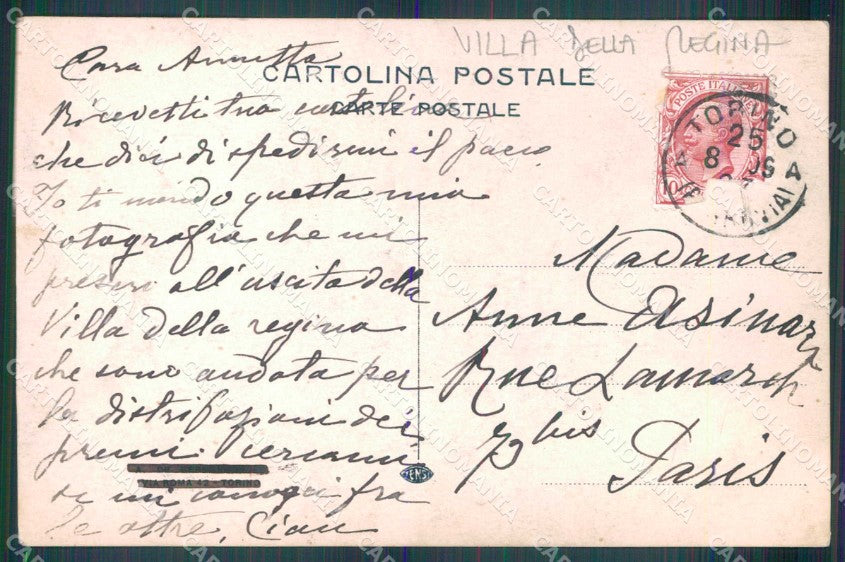 VILLA DELLA REGINA
Cara Annetta
CARTOLINA POSTALE
CARTE POSTALE
Ricevetti tua cartolina
che dici di spedirmi il pacco
Io ti mando questa mia
fotografia che mi
presero all'uscita della
Villa della regina
che sono andata per
la distribuzioni dei
premi.
VIA ROMA 42 - TORINO
se mi conosci fra
le altre, Ciau
POSTE ITALIANE
10
TORINO
25
8
09
Madame
Anne Asinari
Rue Lamarck
73 bis
Paris
CARTOLINOMANIA